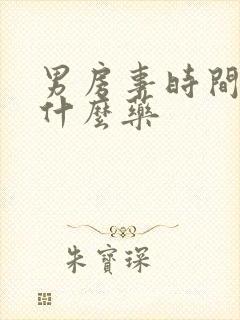 男房事時間
什麼藥
朱寶琛